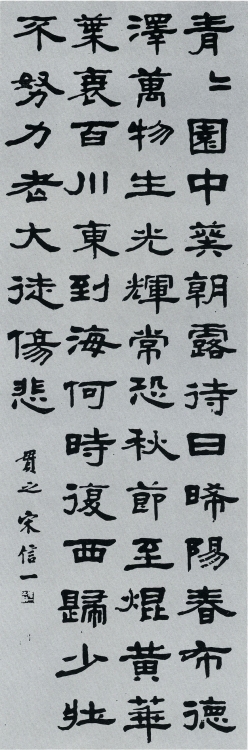 青〻園中葵朝露待日晞陽春布德
澤萬物生光輝常恐秋節至焜黃華
葉衰百川東到海何時復西歸少壯
不努力老大徒傷悲
貫之 宋信一